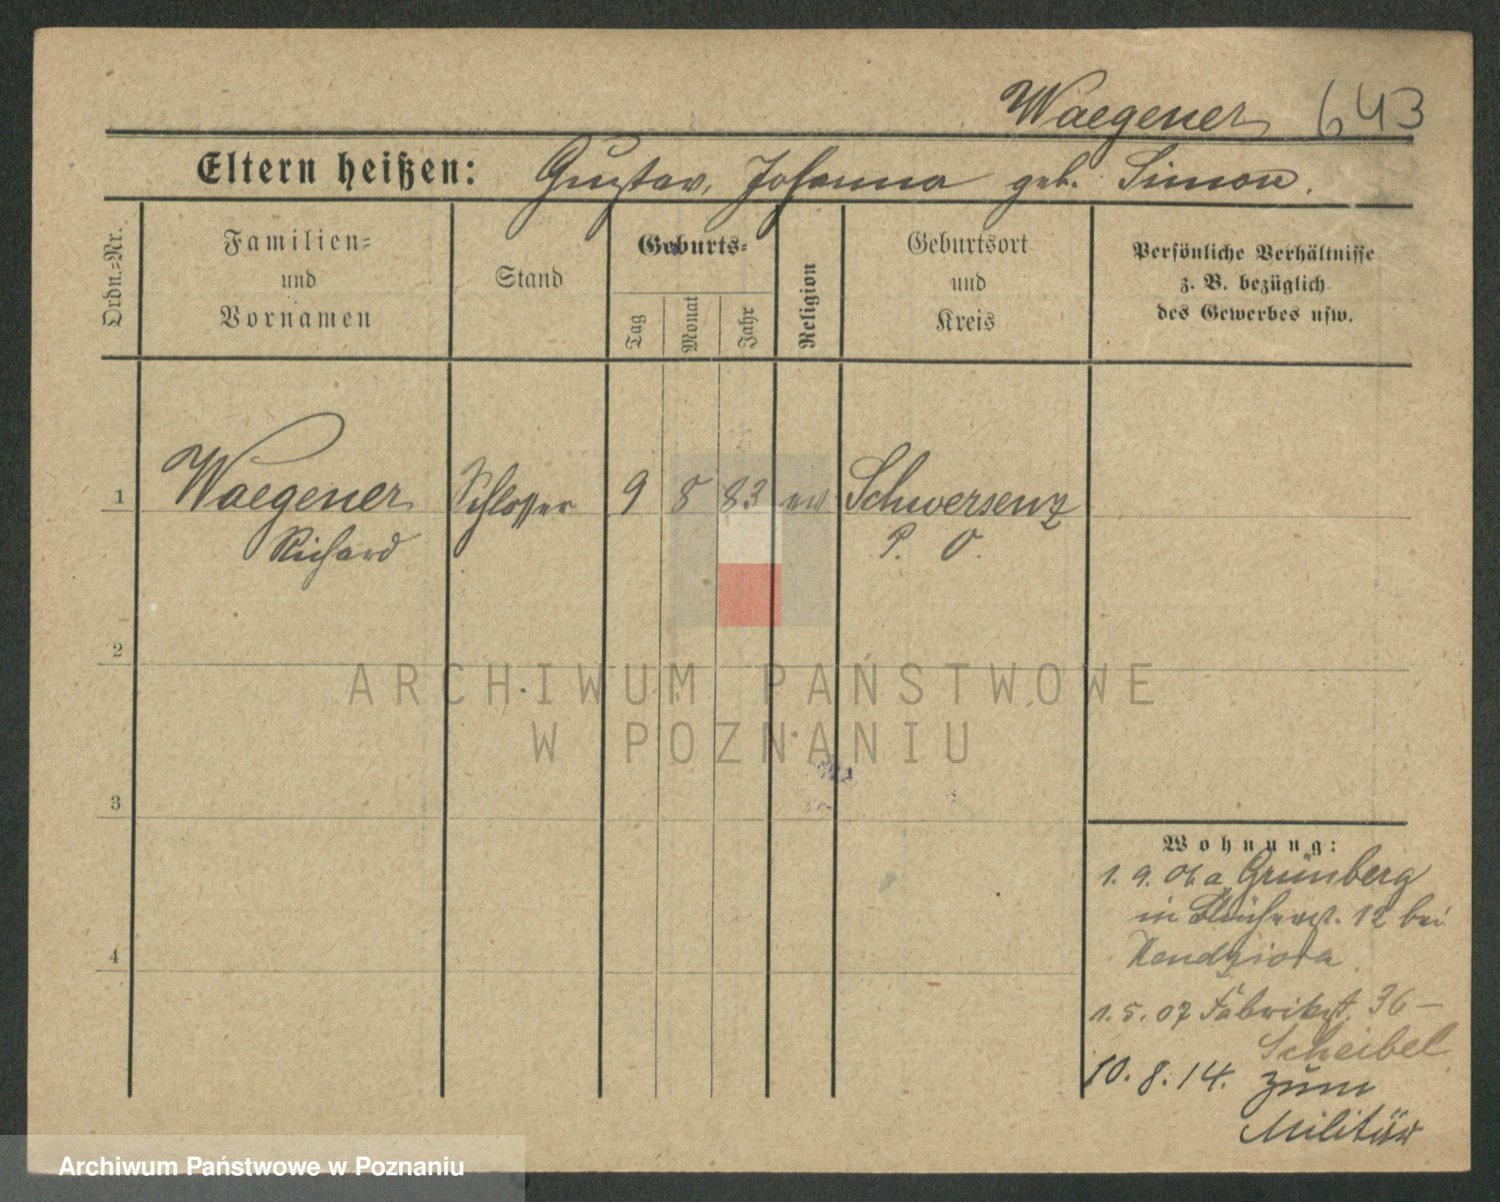 Waegener 643
Eltern heißen: Gustav, Johanna geb. Simon.
Ordn.=Nr.
Familien=
und
Vornamen
Stand
Geburts=
Tag
Monat
Jahr
Religion
Geburtsort
und
Kreis
Persönliche Verhältnisse
z. B. bezüglich
des Gewerbes usw.
1 Waegener Schlosser 9 8 83 ev Schwersenz
Richard P. O.
2
3
4
ARCHIWUM PAŃSTWOWE
W POZNANIU
Wohnung:
1. 9. 06 a Grünberg
in Blücherst. 12 bei
Kendziora
1. 5. 07 Fabrikst. 36 –
Scheibel
10. 8. 14. zum
Militär
Archiwum Państwowe w Poznaniu